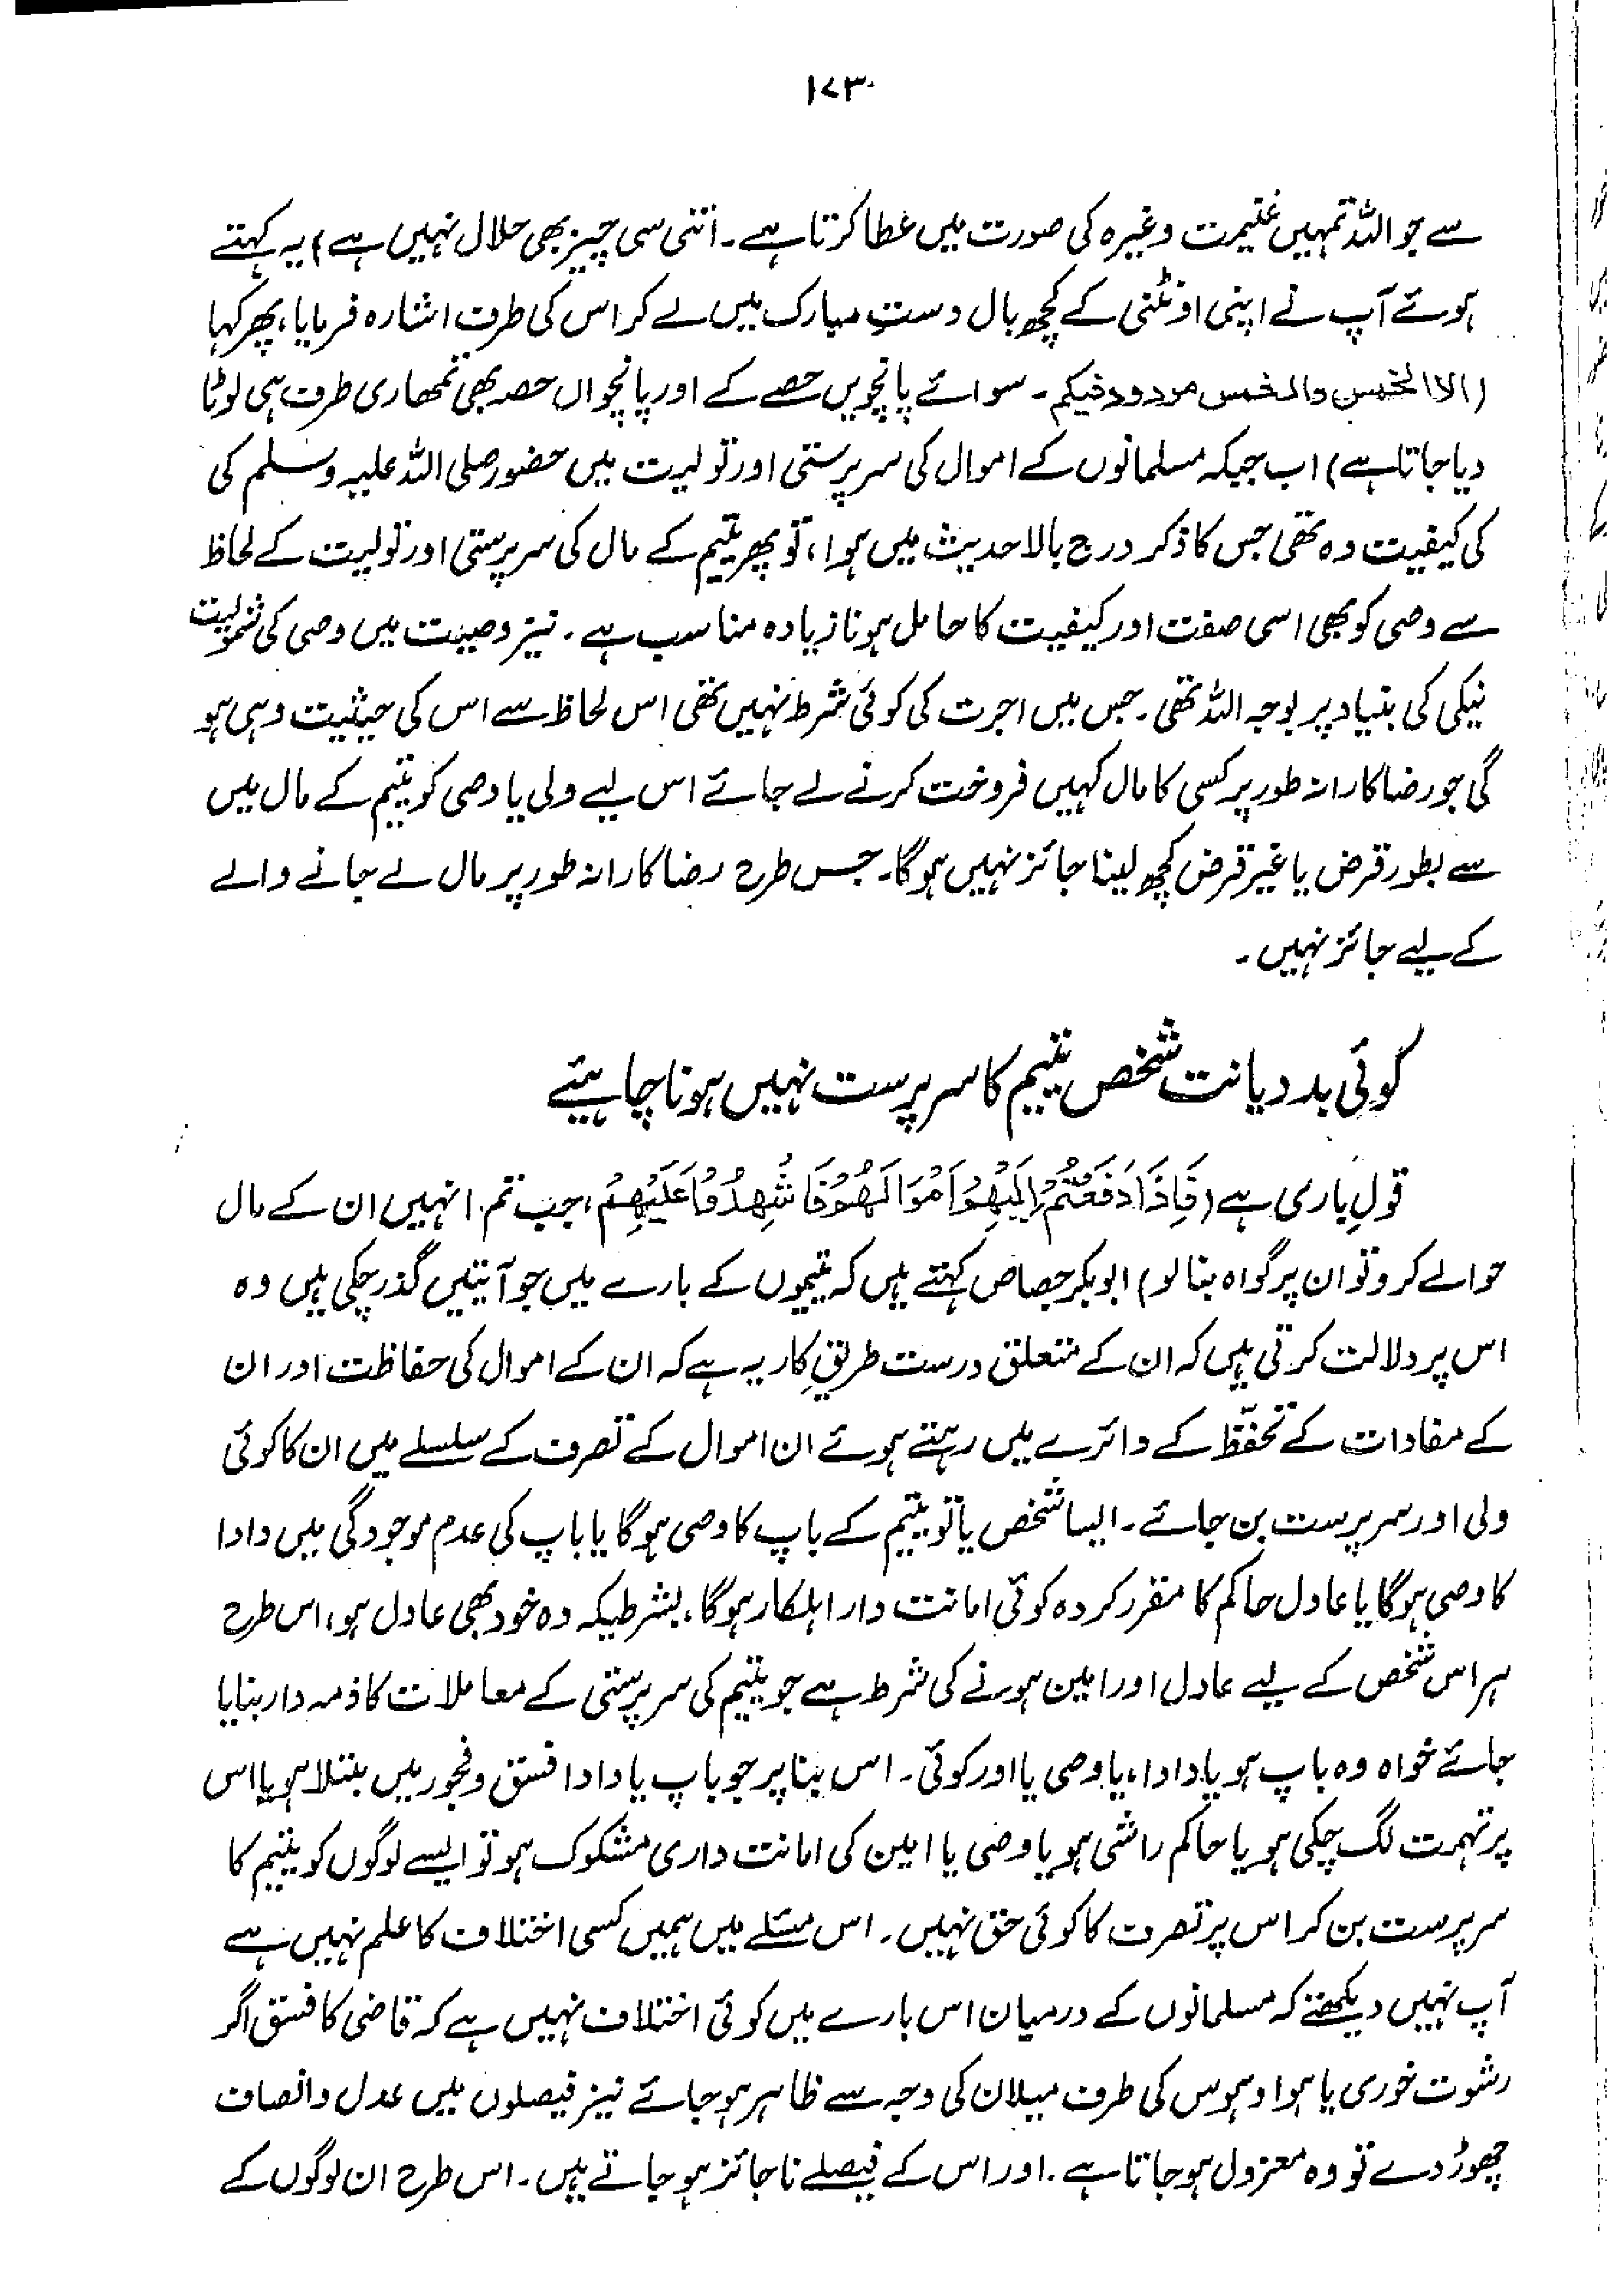 ۱۷۳
سے جو اللہ تمہیں غنیمت وغیرہ کی صورت میں عطا کرتا ہے۔ اتنی سی چیز بھی حلال نہیں ہے) یہ کہتے
ہوئے آپ نے اپنی اونٹنی کے کچھ بال دستِ مبارک میں لے کر اس کی طرف اشارہ فرمایا، پھر کہا
(الا الخمس والخمس مردود فیکم۔ سوائے پانچویں حصے کے اور پانچواں حصہ بھی تمھاری طرف ہی لوٹا
دیا جاتا ہے) اب جبکہ مسلمانوں کے اموال کی سرپرستی اور تولیت میں حضور صلی اللہ علیہ وسلم کی
کی کیفیت وہ تھی جس کا ذکر درج بالا حدیث میں ہوا، تو پھر یتیم کے مال کی سرپرستی اور تولیت کے لحاظ
سے وصی کو بھی اسی صفت اور کیفیت کا حامل ہونا زیادہ مناسب ہے۔ نیز وصیت میں وصی کی شمولیت
نیکی کی بنیاد پر لوجہ اللہ تھی۔ جس میں اجرت کی کوئی شرط نہیں تھی اس لحاظ سے اس کی حیثیت وہی ہو
گی جو رضاکارانہ طور پر کسی کا مال کہیں فروخت کرنے لے جائے اس لیے ولی یا وصی کو یتیم کے مال میں
سے بطور قرض یا غیر قرض کچھ لینا جائز نہیں ہوگا۔ جس طرح رضاکارانہ طور پر مال لے جانے والے
کے لیے جائز نہیں۔
کوئی بددیانت شخص یتیم کا سرپرست نہیں ہونا چاہیئے
قولِ باری ہے (فَاِذَا دَفَعْتُمْ اِلَیْهِمْ اَمْوَالَهُمْ فَاَشْهِدُوْا عَلَیْهِمْ، جب تم انہیں ان کے مال
حوالے کرو تو ان پر گواہ بنا لو) ابوبکر جصاص کہتے ہیں کہ یتیموں کے بارے میں جو آیتیں گذر چکی ہیں وہ
اس پر دلالت کرتی ہیں کہ ان کے متعلق درست طریقِ کار یہ ہے کہ ان کے اموال کی حفاظت اور ان
کے مفادات کے تحفّظ کے دائرے میں رہتے ہوئے ان اموال کے تصرف کے سلسلے میں ان کا کوئی
ولی اور سرپرست بن جائے۔ ایسا شخص یا تو یتیم کے باپ کا وصی ہوگا یا باپ کی عدم موجودگی میں دادا
کا وصی ہوگا یا عادل حاکم کا مقرر کردہ کوئی امانت دار اہلکار ہوگا، بشرطیکہ وہ خود بھی عادل ہو، اس طرح
ہر اس شخص کے لیے عادل اور امین ہونے کی شرط ہے جو یتیم کی سرپرستی کے معاملات کا ذمہ دار بنایا
جائے خواہ وہ باپ ہو یا دادا، یا وصی یا اور کوئی۔ اس بنا پر جو باپ یا دادا فسق و فجور میں مبتلا ہو یا اس
پر تہمت لگ چکی ہو یا حاکم راشی ہو یا وصی یا امین کی امانت داری مشکوک ہو تو ایسے لوگوں کو یتیم کا
سرپرست بن کر اس پر تصرف کا کوئی حق نہیں۔ اس مسئلے میں ہمیں کسی اختلاف کا علم نہیں ہے
آپ نہیں دیکھتے کہ مسلمانوں کے درمیان اس بارے میں کوئی اختلاف نہیں ہے کہ قاضی کا فسق اگر
رشوت خوری یا ہوا و ہوس کی طرف میلان کی وجہ سے ظاہر ہو جائے نیز فیصلوں میں عدل و انصاف
چھوڑ دے تو وہ معزول ہو جاتا ہے۔ اور اس کے فیصلے ناجائز ہو جاتے ہیں۔ اس طرح ان لوگوں کے